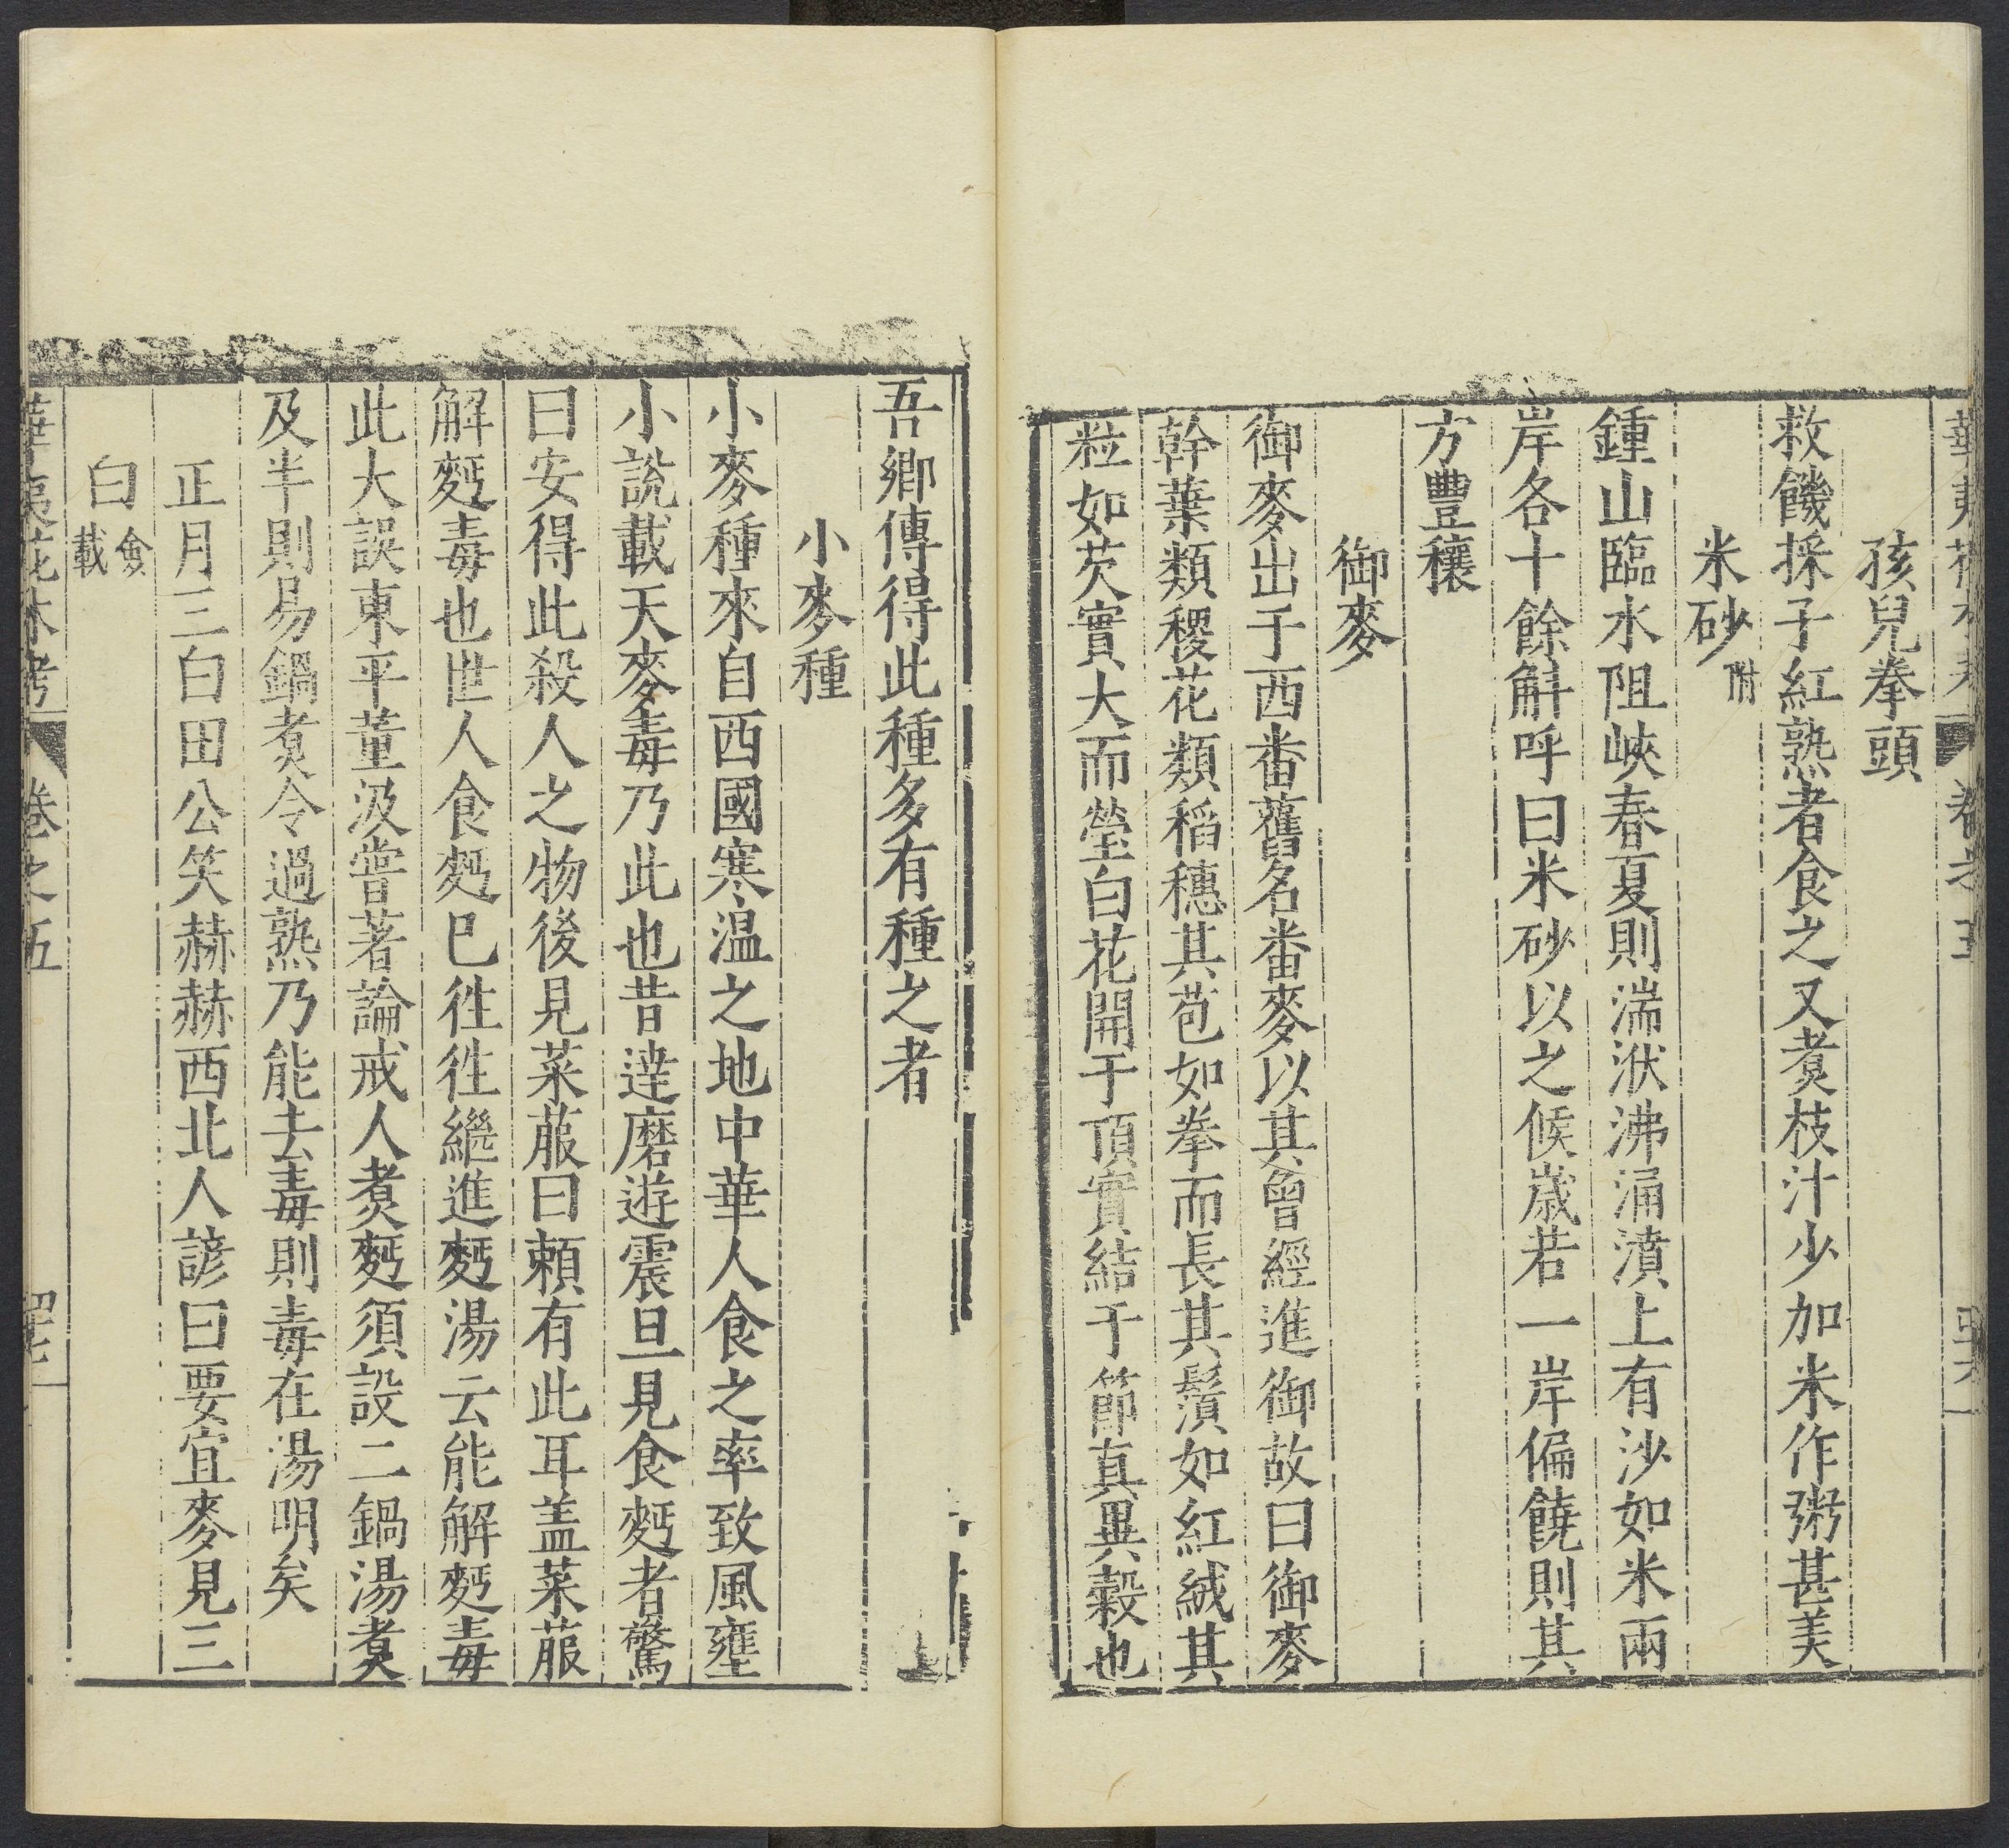 孩兒拳頭
救饑採子紅熟者食之又煑枝汁少加米作粥甚美
米砂附
鍾山臨水阻峽春夏則湍洑沸涌濆上有沙如米兩
岸各十餘斛呼曰米砂以之候歲若一岸偏饒則其
方豐穰
御麥
御麥出于西畨舊名畨麥以其曾經進御故曰御麥
幹葉類稷花類稻穗其苞如拳而長其鬚如紅絨其
粒如芡實大而瑩白花開于頂實結于節真異糓也
吾鄉傳得此種多有種之者
小麥種
小麥種來自西國寒温之地中華人食之率致風壅
小說載天麥毒乃此也昔達磨遊震旦見食麪者驚
曰安得此殺人之物後見菜菔曰頼有此耳盖菜菔
解麪毒也世人食麪巳徃徃繼進麪湯云能解麪毒
此大誤東平董汲嘗著論戒人煑麪須設二鍋湯煑
及半則易鍋煑令過熟乃能去毒則毒在湯明矣
正月三白田公笑赫赫西北人諺曰要宜麥見三
白僉載
華夷花木考
卷之五
四七